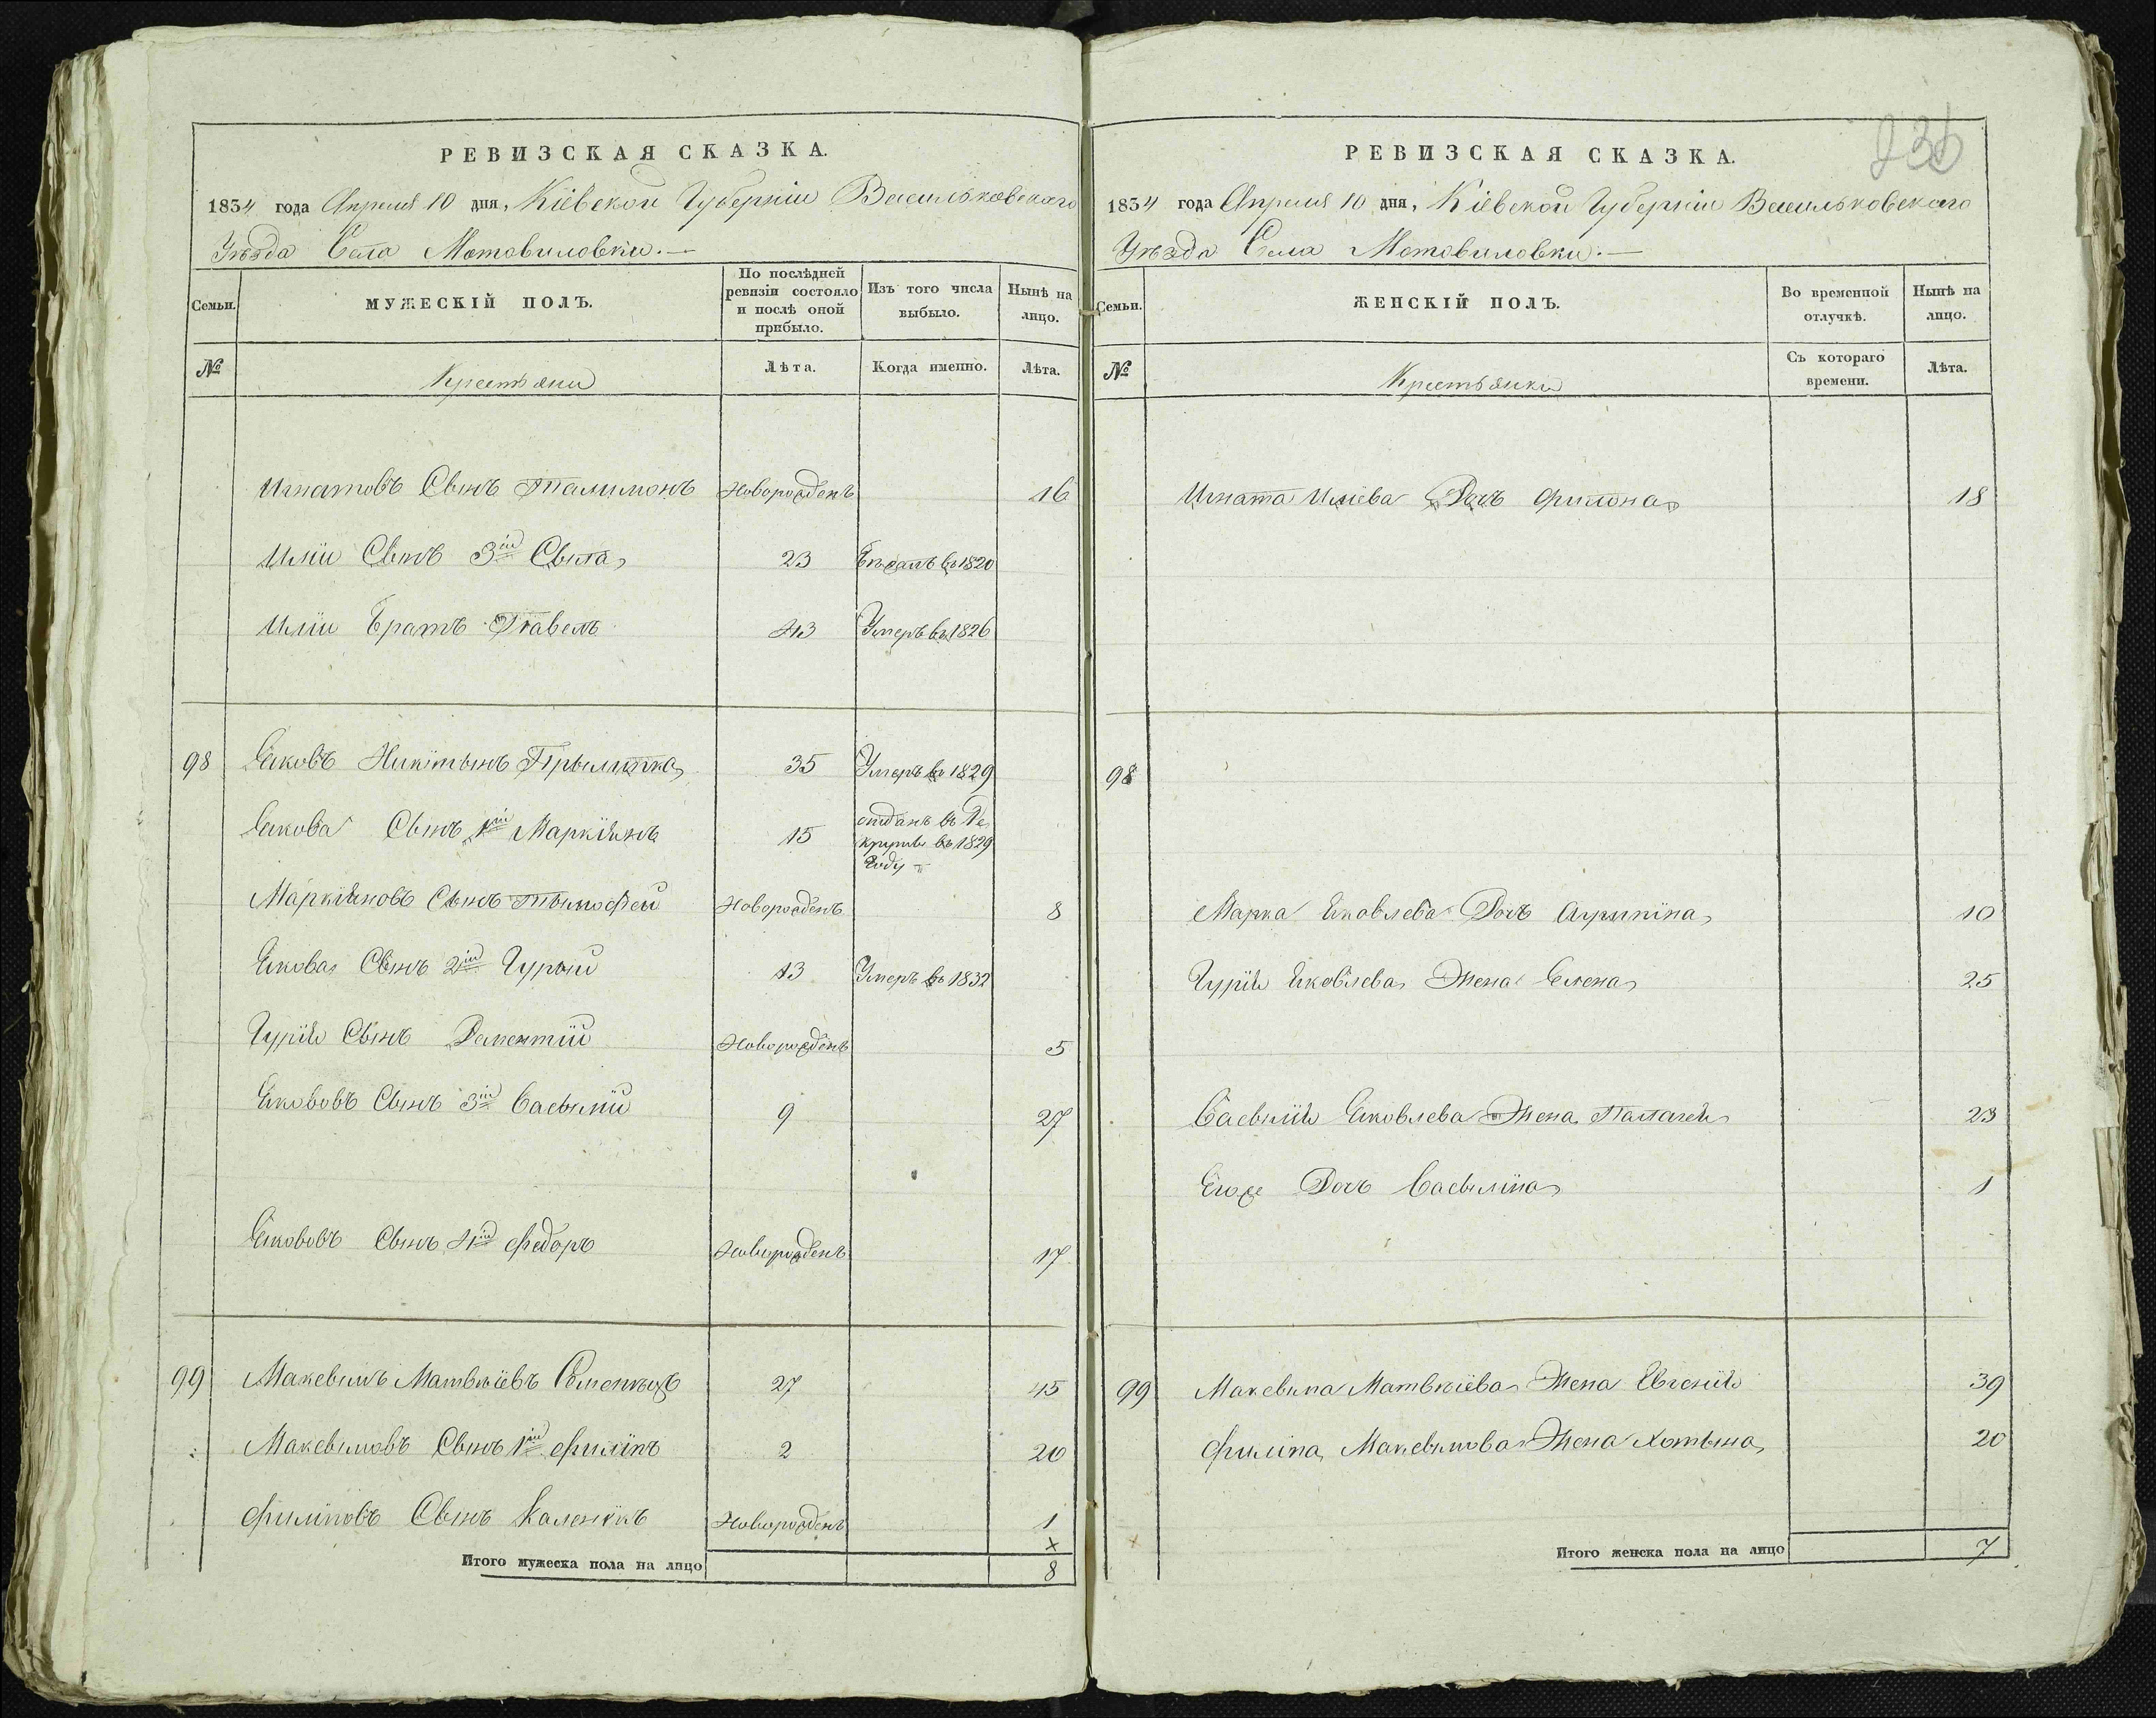 РЕВИЗСКАЯ СКАЗКА.
1834 года Апреля 10 дня, Кіевской Губерніи Васильковскаго
Уѣзда Села Мотовиловки.—
Семьи.
МУЖЕСКІЙ ПОЛЪ.
По послѣдней ревизіи состояло и послѣ оной прибыло.
Изъ того числа выбыло.
Нынѣ на лицо.
№
Крестьяни
Лѣта.
Когда именно.
Лѣта.
Игнатовъ Сынъ Талимонъ Новорожденъ 16
Иліи Сынъ 3ій Сыла 23 Бѣжалъ въ 1820
Иліи Братъ Павелъ 43 Умеръ въ 1826
98 Яковъ Никитынъ 35 Умеръ въ 1829
Якова Сынъ 1ій Маркіянъ 15 отданъ въ Ре
круты въ 1829
Году
Маркіяновъ Сынъ Тымофей Новорожденъ 8
Якова Сынъ 2ій Гурый 13 Умеръ въ 1832
Гурія Сынъ Дементій Новорожденъ 5
Якововъ Сынъ 3ій Васылій 9 27
Якововъ Сынъ 4ій Федоръ Новорожденъ 17
99 Максымъ Матвѣіевъ 27 45
Максымовъ Сынъ 1ій Филіпъ 2 20
Филіповъ Сынъ Каленикъ Новорожденъ 1
×
Итого мужеска пола на лицо 8
236
РЕВИЗСКАЯ СКАЗКА.
1834 года Апреля 10 дня, Кіевской Губерніи Васильковскаго
Уѣзда Села Мотовиловки.—
Семьи.
ЖЕНСКІЙ ПОЛЪ.
Во временной отлучкѣ.
Нынѣ на лицо.
№
Крестьянки
Съ котораго времени.
Лѣта.
Игната Иліева Дочъ 18
98
Марка Яковлева Дочъ Агрыпіна 10
Гурія Яковлева Жена Елена 25
Васылія Яковлева Жена Палагея 23
Егоже Дочъ Васыліна 1
99 Максыма Матвѣіева Жена Евгенія 39
Филіпа Максымова Жена Хотына 20
×
Итого женска пола на лицо 7